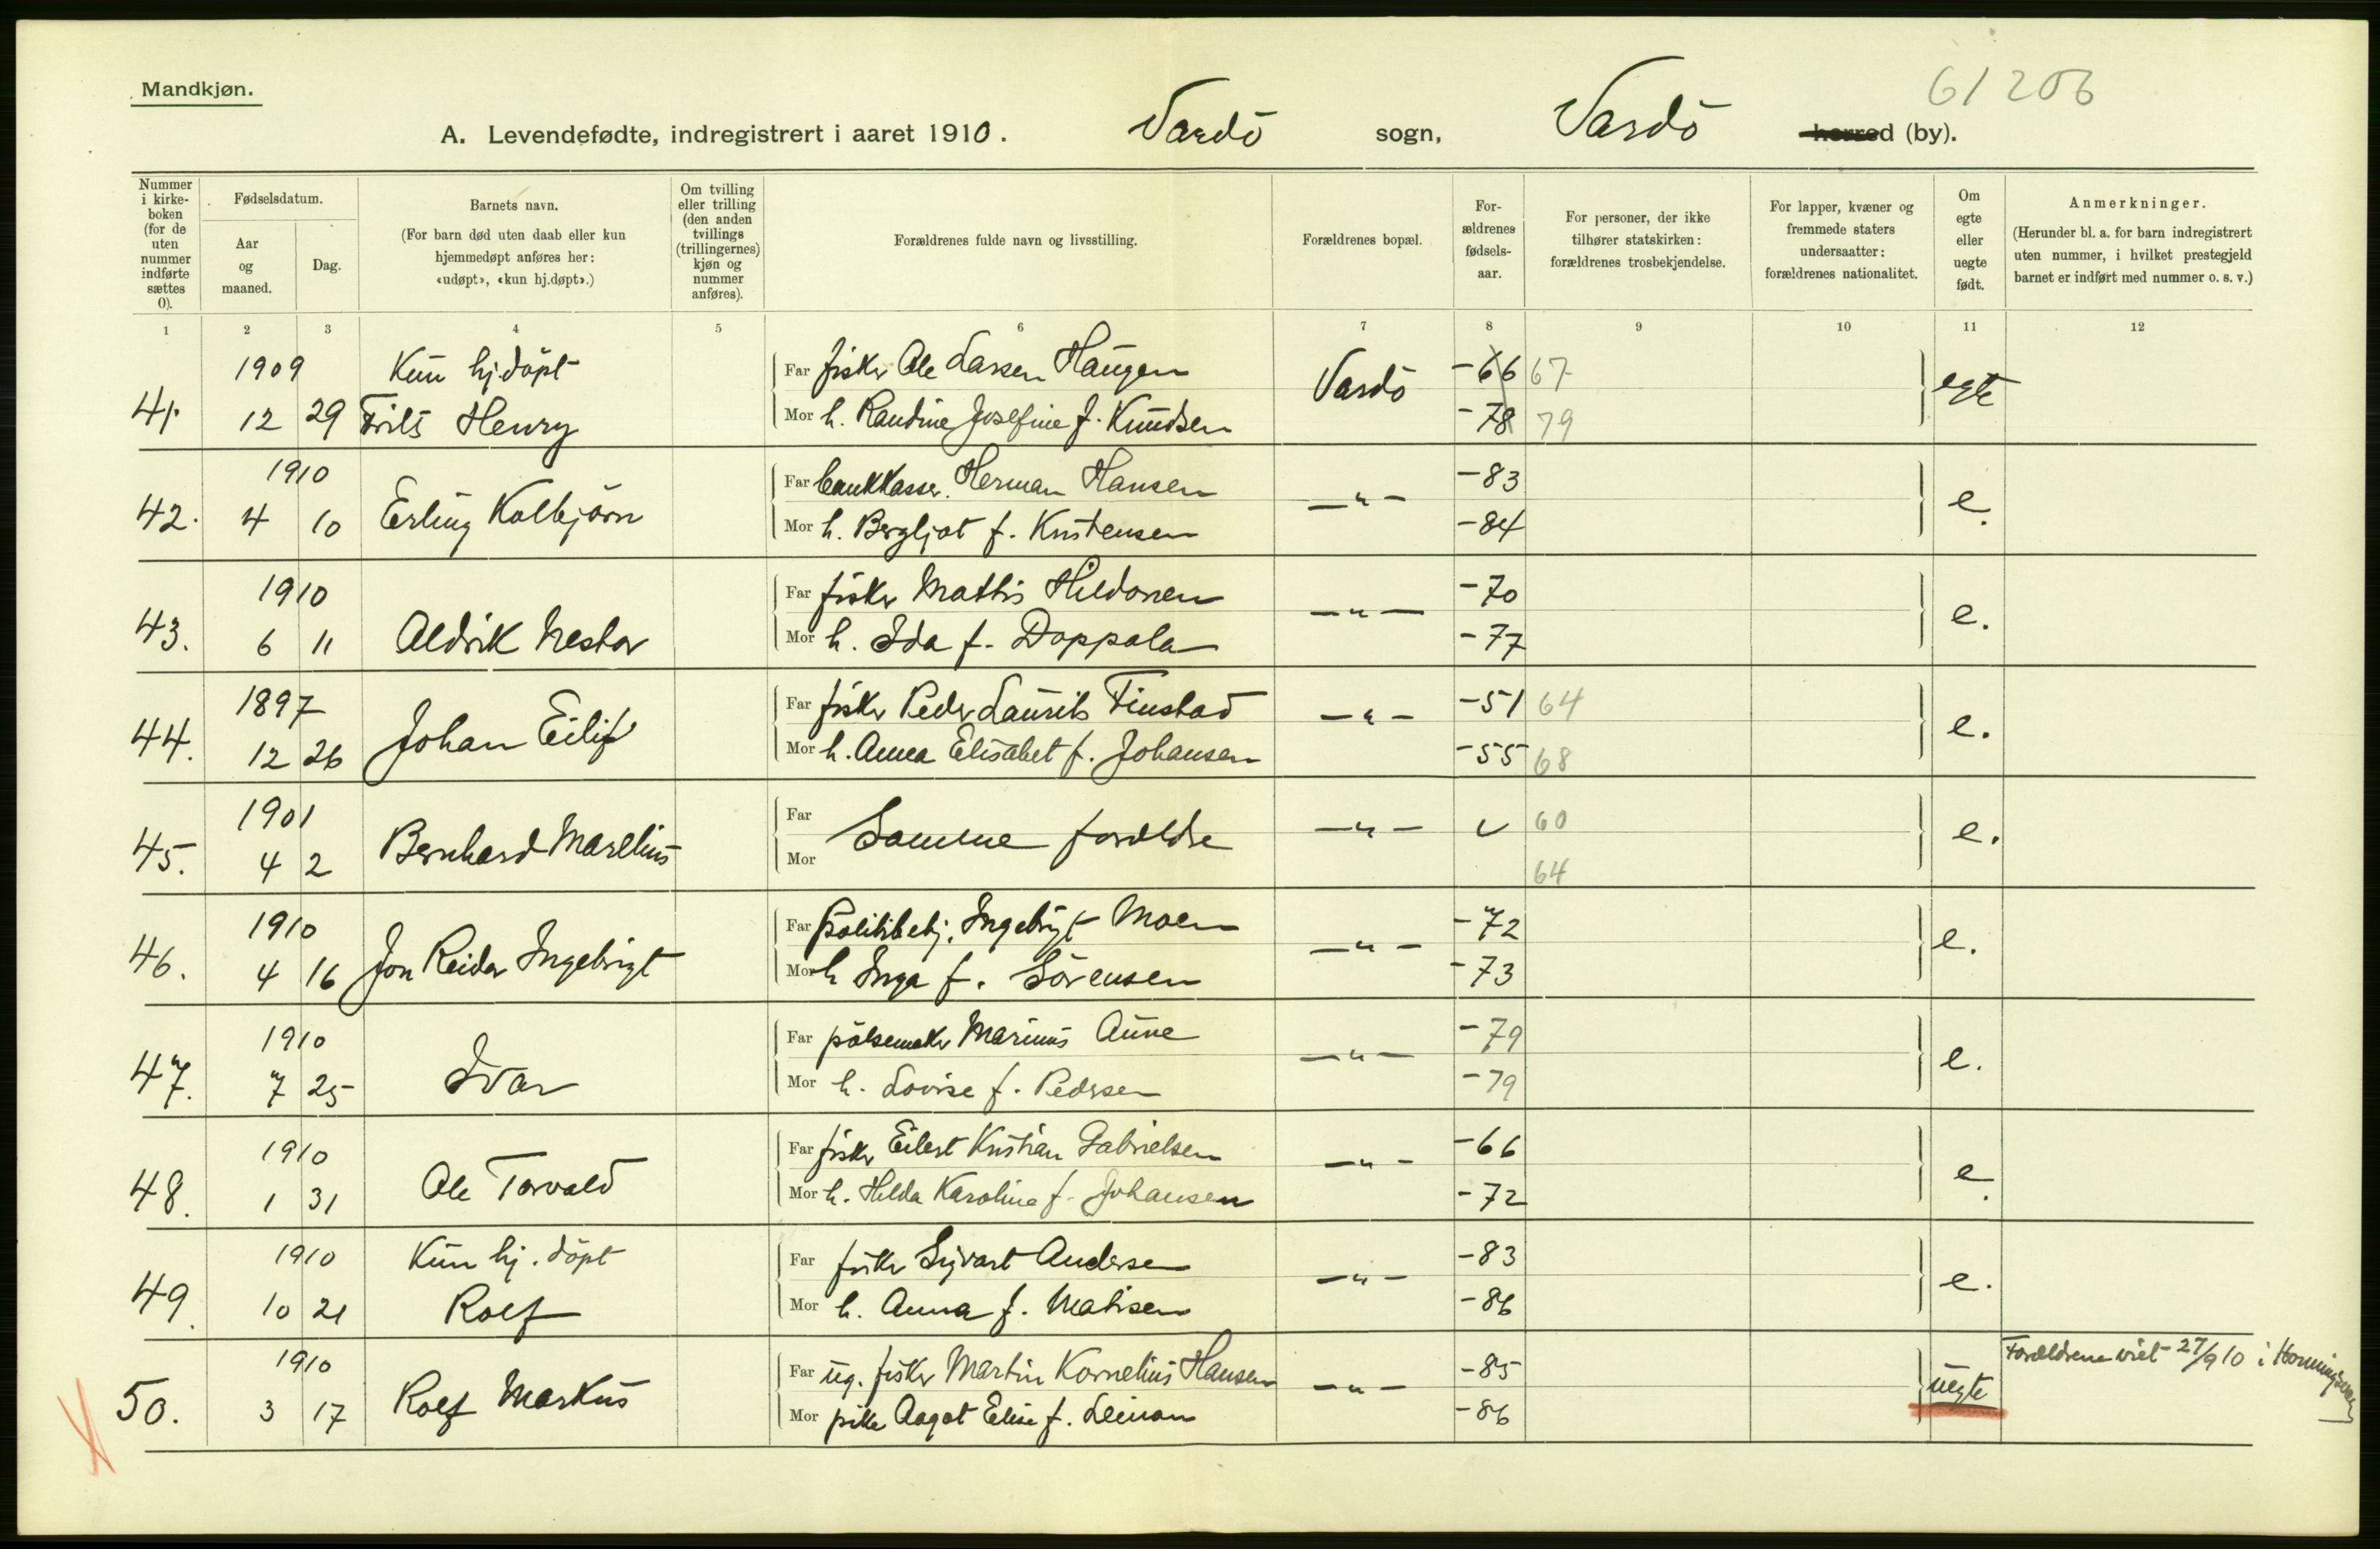 61 206
Mandkjøn.
A. Levendefødte, indregistrert i aaret 1910. Vardö sogn, Vardö herred (by).
Nummer i kirkeboken (for de uten nummer indførte sættes 0).
Fødselsdatum.
Aar og maaned.
Dag.
Barnets navn.
(For barn død uten daab eller kun hjemmedøpt anføres her: «udøpt», «kun hj.døpt».)
Om tvilling eller trilling (den anden tvillings (trillingernes) kjøn og nummer anføres).
Forældrenes fulde navn og livsstilling.
Forældrenes bopæl.
Forældrenes fødselsaar.
For personer, der ikke tilhører statskirken: forældrenes trosbekjendelse.
For lapper, kvæner og fremmede staters undersaatter: forældrenes nationalitet.
Om egte eller uegte født.
Anmerkninger.
(Herunder bl. a. for barn indregistrert uten nummer, i hvilket prestegjeld barnet er indført med nummer o. s. v.)
1 2 3 4 5 6 7 8 9 10 11 12
1909 Kun hj.döpt Far fisker Ole Larsen Haugen Vardö -66 67 egte
41. 12 29 Frits Henry Mor h. Randine Josefine f. Knudsen -78 79
1910 Far bankkasser. Herman Hansen -"- -83 e.
42. 4 10 Erling Kolbjörn Mor h. Bergljot f. Kristensen -84
1910 Far fisker Mattis Hildonen -"- -70 e.
43. 6 11 Aldrik Nestor Mor h. Ida f. Doppala -77
1897 Far fisker Peder Laurits Finstad -"- -51 64 e.
44. 12 26 Johan Eilif Mor h. Anna Elisabet f. Johansen -55 68
1901 Far Samme forældre -"- 60 e.
45. 4 2 Bernhard Marelius Mor 64
1910 Far Politibetj. Ingebrigt Moen -"- -72 e.
46. 4 16 Jon Reidar Ingebrigt Mor h Inga f. Sörensen -73
1910 Far pölsemaker Marinus Aune -"- -79 e.
47. 7 25 Ivar Mor h. Lovise f. Pedersen -79
1910 Far fisker Eilert Kristian Gabrielsen -"- -66 e.
48. 1 31 Ole Torvald Mor h. Hilda Karoline f. Johansen -72
1910 Kun hj. döpt Far fisker Sigvart Andersen -"- -83 e.
49. 10 21 Rolf Mor h. Anna f. Matisen -86
1910 Far ug. fisker Martin Kornelius Hansen -"- -85 uegte Forældrene viet 27/9 10 i Honningsvaag
50. 3 17 Rolf Markus Mor pike Aagot Eline f. Leinan -86